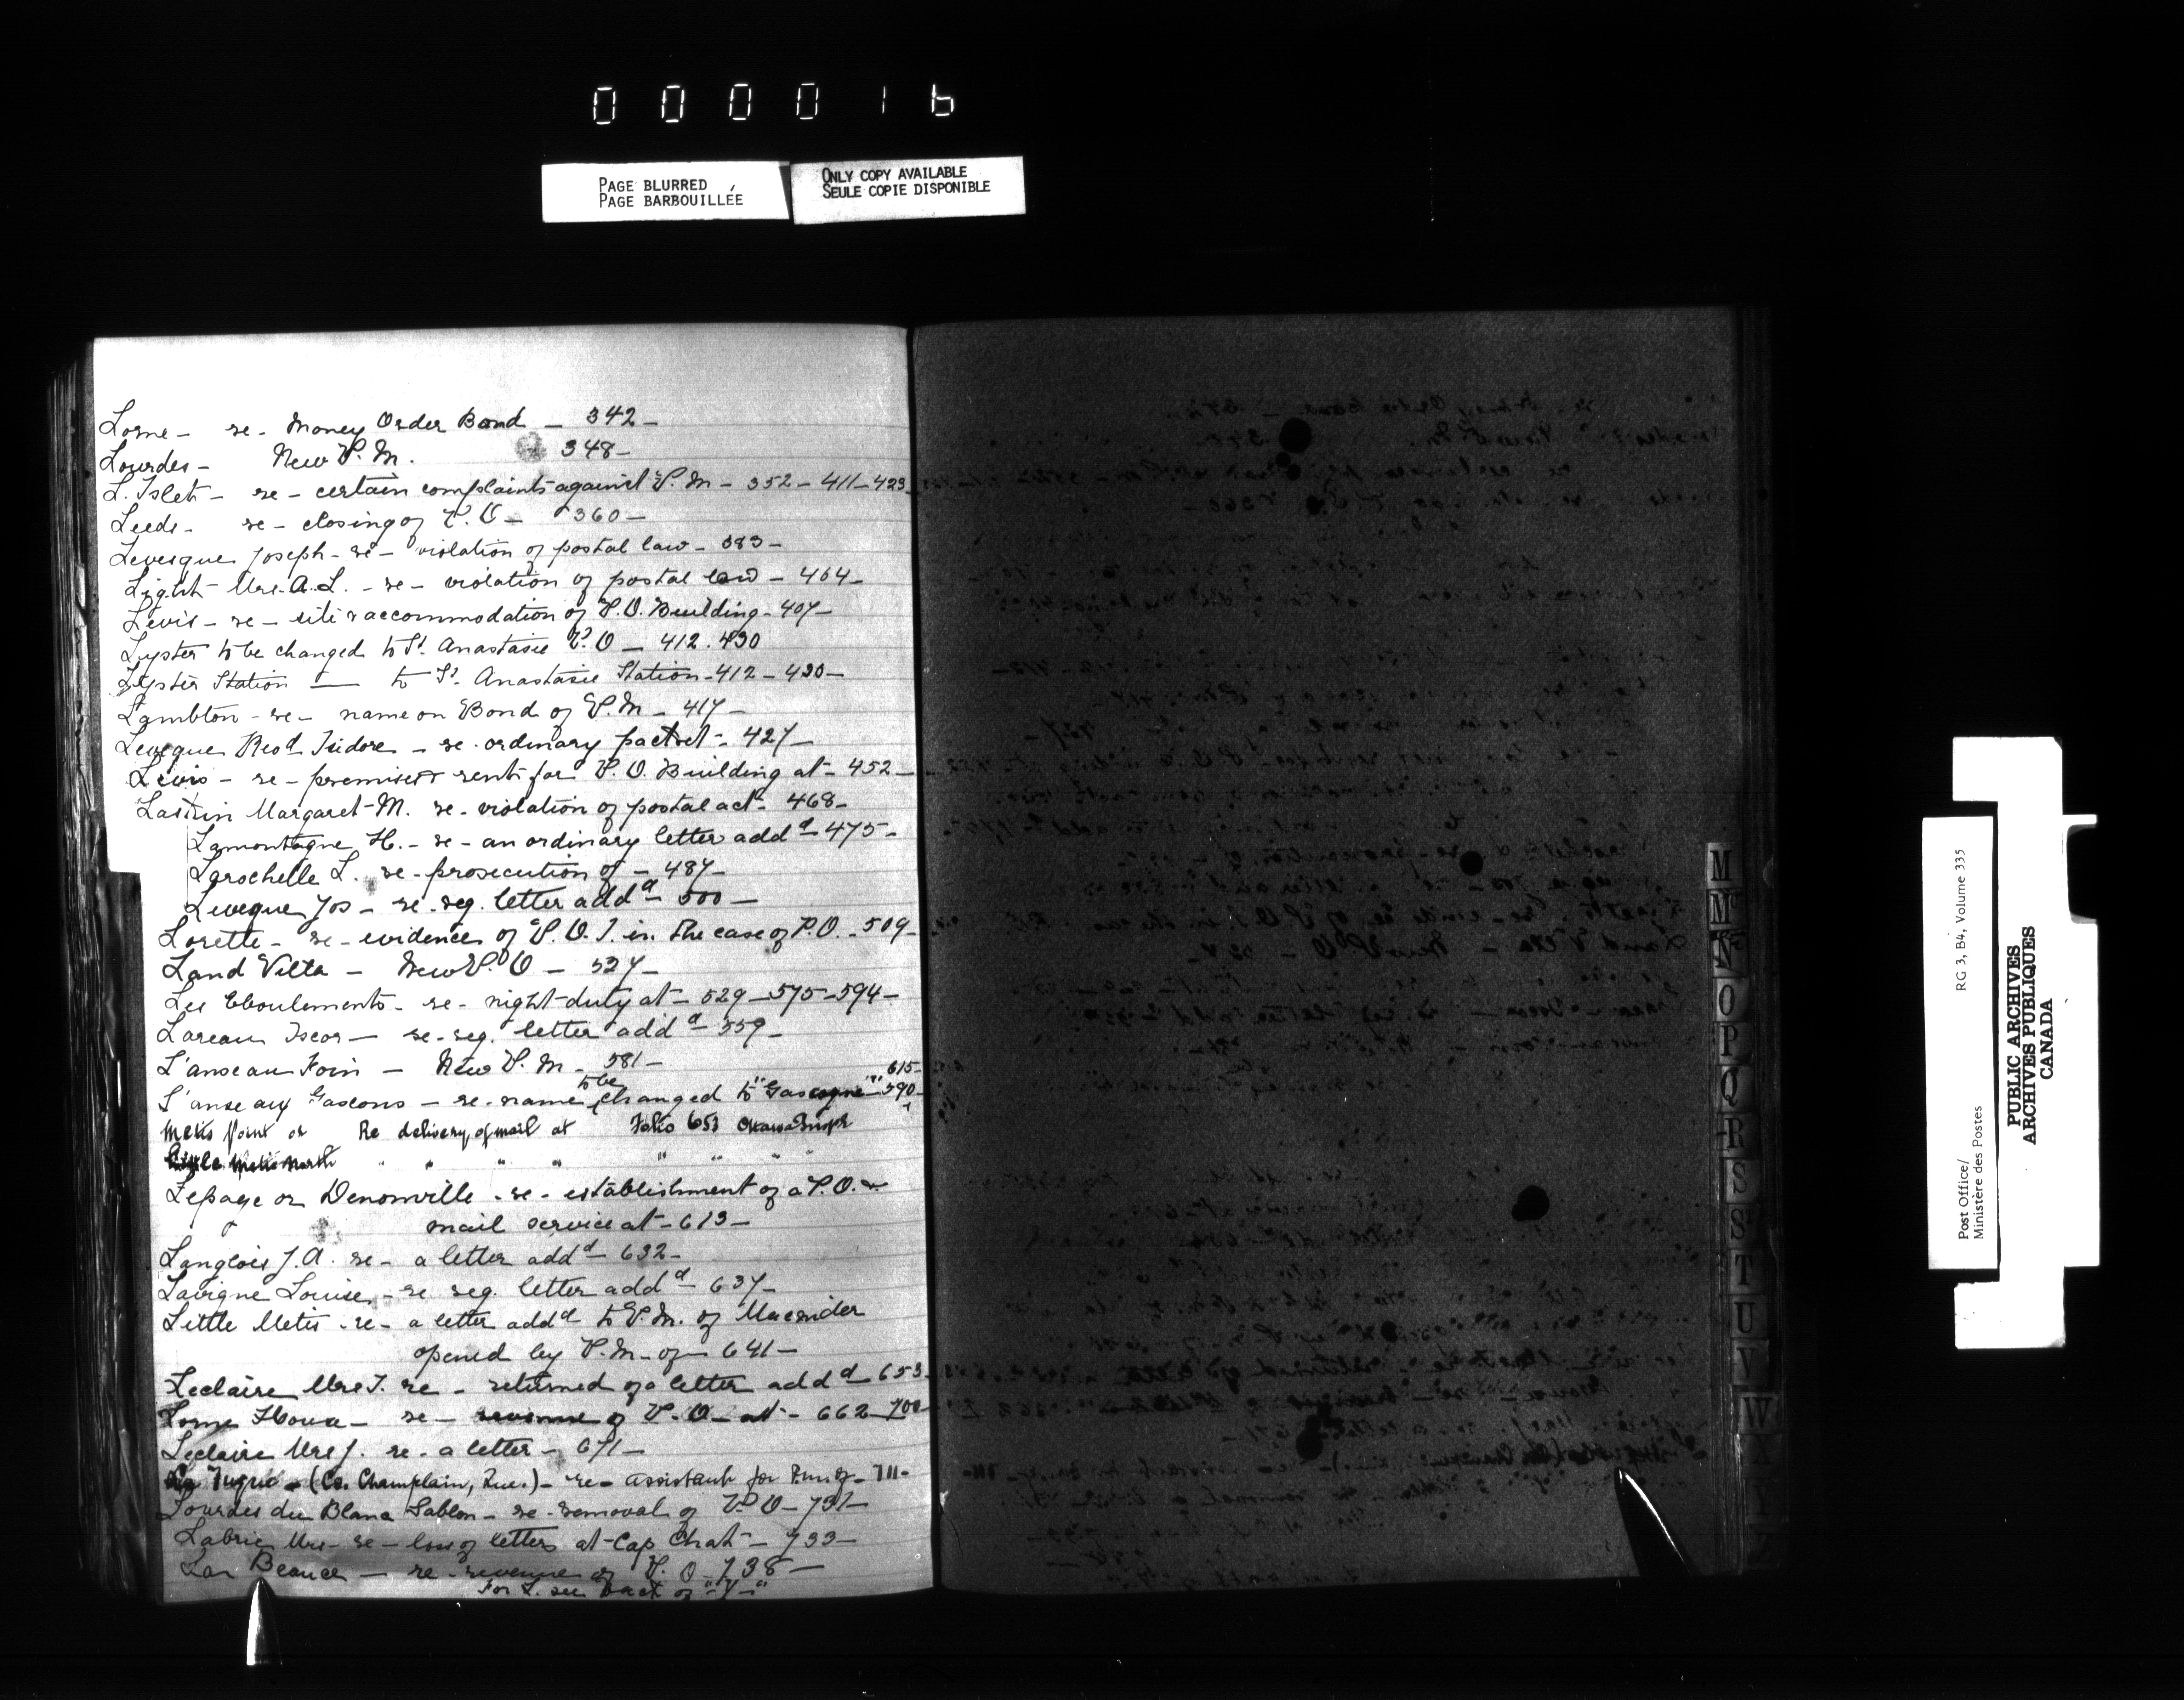 000016
PAGE BLURRED
PAGE BARBOUILLÉE
ONLY COPY AVAILABLE
SEULE COPIE DISPONIBLE
Lorne - re - Money Order Bond - 342 -
Lourdes - New P.M. 348 -
L. Islet - re - certain complaints against P.M - 352 - 411 - 423
Leeds - re - closing of P.O - 360 -
Levesque Joseph - re - violation of postal law - 383 -
Light Mrs. A.L. - re - violation of postal law - 404 -
Levis - re - site & accommodation of P.O. Building - 407 -
Lyster to be changed to St. Anastasie P.O - 412 . 430
Lyster Station — to St. Anastasie Station - 412 - 430 -
Lambton - re - name on Bond of P.M - 417 -
Leveque Revd Isidore - re - ordinary packet - 427 -
Levis - re - premises & rents for P.O. Building at - 452 -
Margaret M. re - violation of postal act - 468 -
Lamontagne H. - re - an ordinary letter addd - 475 -
Larochelle L. re - prosecution of - 487 -
Leveque Jos - re - reg. letter addd - 500 -
Lorette - re - evidence of P.O.I. in the case of P.O. - 509 -
Land Villa - New P.O - 527 -
Les Eboulements - re - night duty at - 529 - 575 - 594 -
Lareau - re - reg. letter addd - 559 -
L'anse au Foin - New P.M - 581 -
615 -
to be
L'anse aux Gascons - re - name changed to "Gascogne" - 590 -
Metis Point or Re delivery of mail at Folio 653 Ottawa Inspr
Little Metis North " " " " " " "
Lepage or Denonville - re - establishment of a P.O. &
mail service at - 613 -
Langlois J.A. re - a letter addd - 632 -
Lavigne Louise - re reg. letter addd - 637 -
Little Metis - re - a letter addd to P.M. of Macnider
opened by P.M. of - 641 -
Leclaire Mrs J. re - returned of a letter addd - 653 -
Lorne House - re - revenue of P.O - at - 662 - 700 -
Leclaire Mrs J. re - a letter - 671 -
La Tuque - (Co. Champlain, Que.) - re - assistant for P.M. of - 711 -
Lourdes du Blanc Sablon - re - removal of P.O - 731 -
Labrie Mrs - re - loss of letters at Cap Chat - 733 -
Beauce - re - revenue of P.O - 738 -
For L. see back of "Y"
M
Mc
N
O
P
Q
R
S
S
T
U
V
W
X
Y
Z
Post Office/
Ministère des Postes
RG 3, B4, Volume 335
PUBLIC ARCHIVES
ARCHIVES PUBLIQUES
CANADA